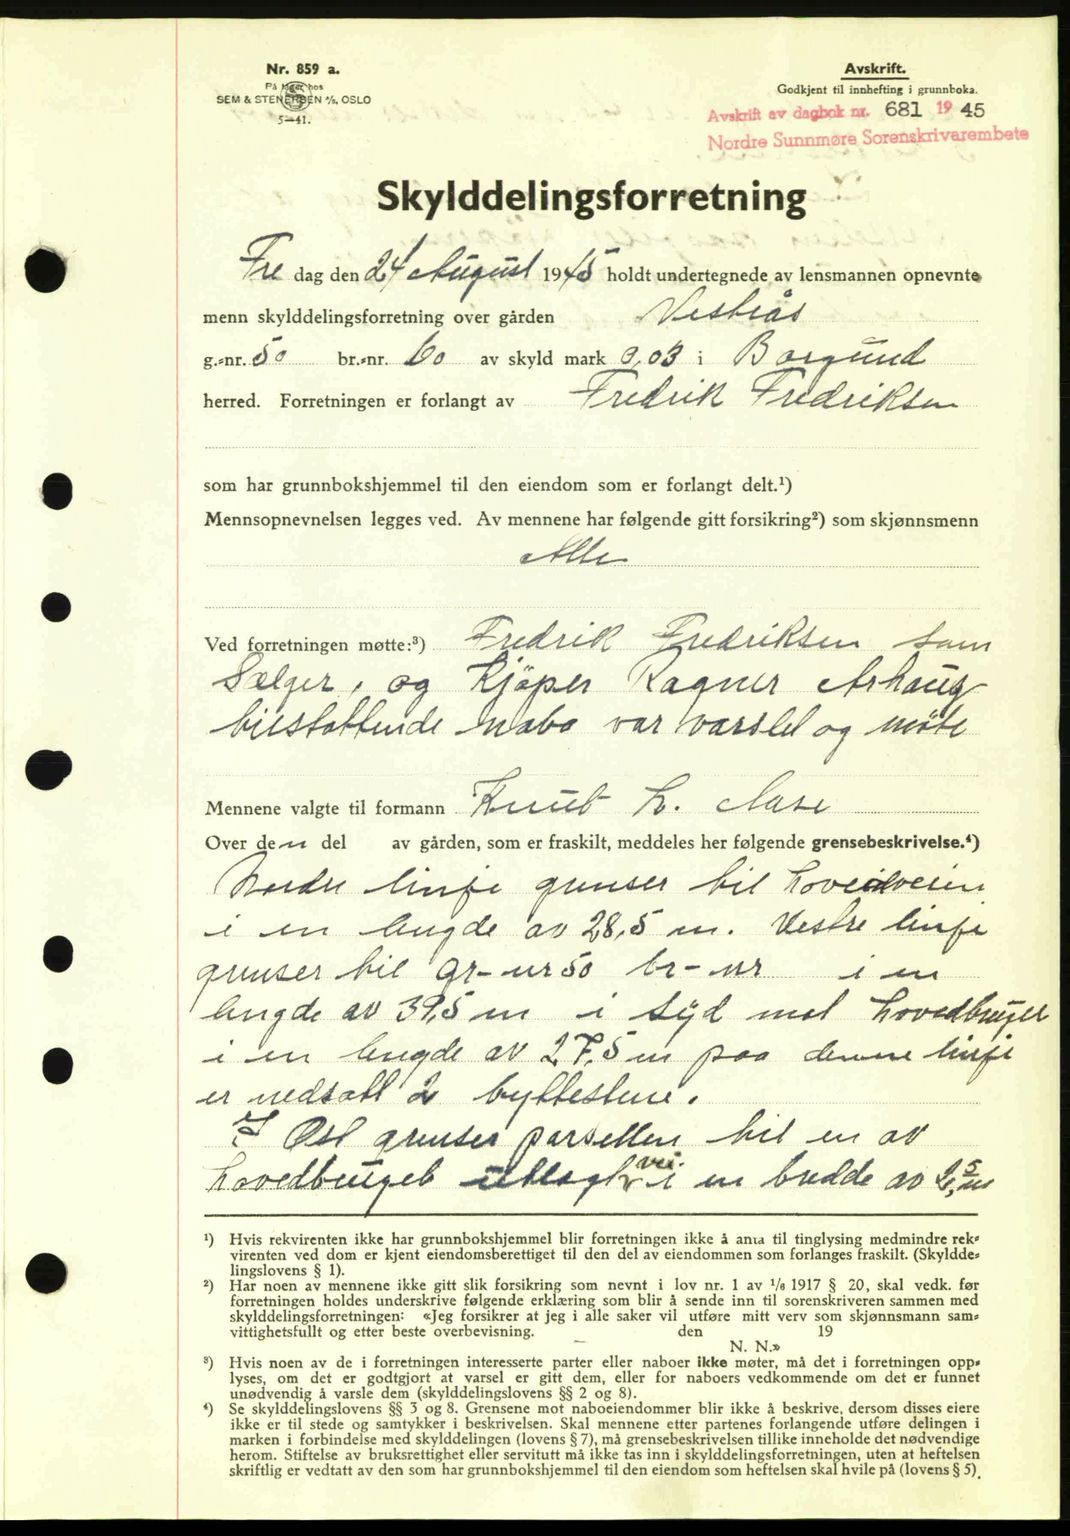 Nr. 859 a.
På lager hos
SEM & STENERSEN A/S, OSLO
5—41.
Avskrift.
Godkjent til innhefting i grunnboka.
Avskrift av dagbok nr. 681 1945
Nordre Sunnmøre Sorenskrivarembete
Skylddelingsforretning
Fre dag den 24/ August 1945 holdt undertegnede av lensmannen opnevnte
menn skylddelingsforretning over gården Vestrås
g.-nr. 50 br.-nr. 60 av skyld mark 0,03 i Borgund
herred. Forretningen er forlangt av Fredrik Fredriksen
som har grunnbokshjemmel til den eiendom som er forlangt delt.¹)
Mennsopnevnelsen legges ved. Av mennene har følgende gitt forsikring²) som skjønnsmenn
Alle
Ved forretningen møtte:³) Fredrik Fredriksen som
Sælger, og Kjøper Ragner Århaug
tilstøttende nabo var varslet og møte
Mennene valgte til formann Knut L. Aase
Over den del av gården, som er fraskilt, meddeles her følgende grensebeskrivelse.⁴)
Nordre linje grenser til hovedveien
i en lengde av 28,5 m. Vestre linje
grenser til gr-nr 50 br-nr i en
lengde av 39,5 m i syd mot hovedbruget
i en lengde av 27,5 m paa denne linje
er nedsatt 2 byttestene.
I Øst grenser parsellen til en av
hovedbruget utlagt vei i en bredde av 2,5 m
¹) Hvis rekvirenten ikke har grunnbokshjemmel blir forretningen ikke å anta til tinglysing medmindre rek-
virenten ved dom er kjent eiendomsberettiget til den del av eiendommen som forlanges fraskilt. (Skyldde-
lingslovens § 1).
²) Har noen av mennene ikke gitt slik forsikring som nevnt i lov nr. 1 av 1/6 1917 § 20, skal vedk. før
forretningen holdes underskrive følgende erklæring som blir å sende inn til sorenskriveren sammen med
skylddelingsforretningen: «Jeg forsikrer at jeg i alle saker vil utføre mitt verv som skjønnsmann sam-
vittighetsfullt og etter beste overbevisning. den 19
N. N.»
³) Hvis noen av de i forretningen interesserte parter eller naboer ikke møter, må det i forretningen opp-
lyses, om det er godtgjort at varsel er gitt dem, eller for naboers vedkommende om det er funnet
unødvendig å varsle dem (skylddelingslovens §§ 2 og 8).
⁴) Se skylddelingslovens §§ 3 og 8. Grensene mot naboeiendommer blir ikke å beskrive, dersom disses eiere
ikke er til stede og samtykker i beskrivelsen. Skal mennene etter partenes forlangende utføre delingen i
marken i forbindelse med skylddelingen (lovens § 7), må grensebeskrivelsen tillike inneholde det nødvendige
herom. Stiftelse av bruksrettighet eller servitutt må ikke tas inn i skylddelingsforretningen, uten at heftelsen
skriftlig er vedtatt av den som har grunnbokshjemmel til den eiendom som heftelsen skal hvile på (lovens § 5).